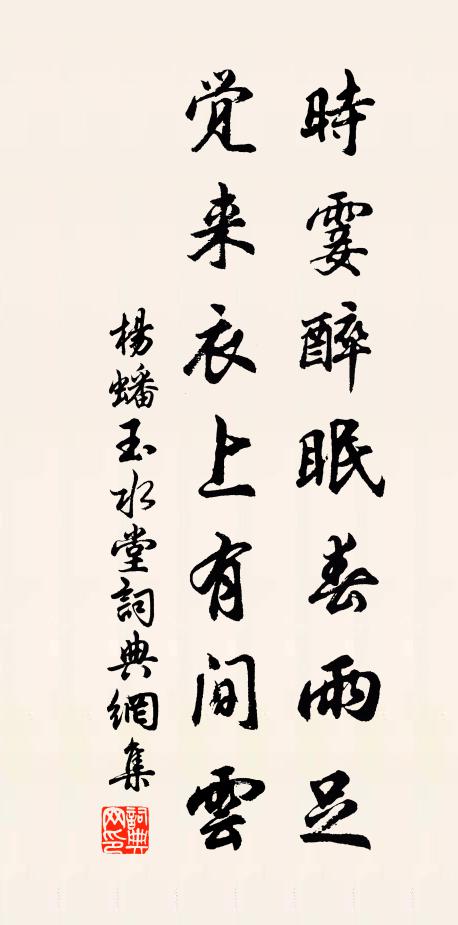 時霎醉眠春雨足
覚来衣上有间雲
楊蟠玉水堂詞典網集
詞典网印